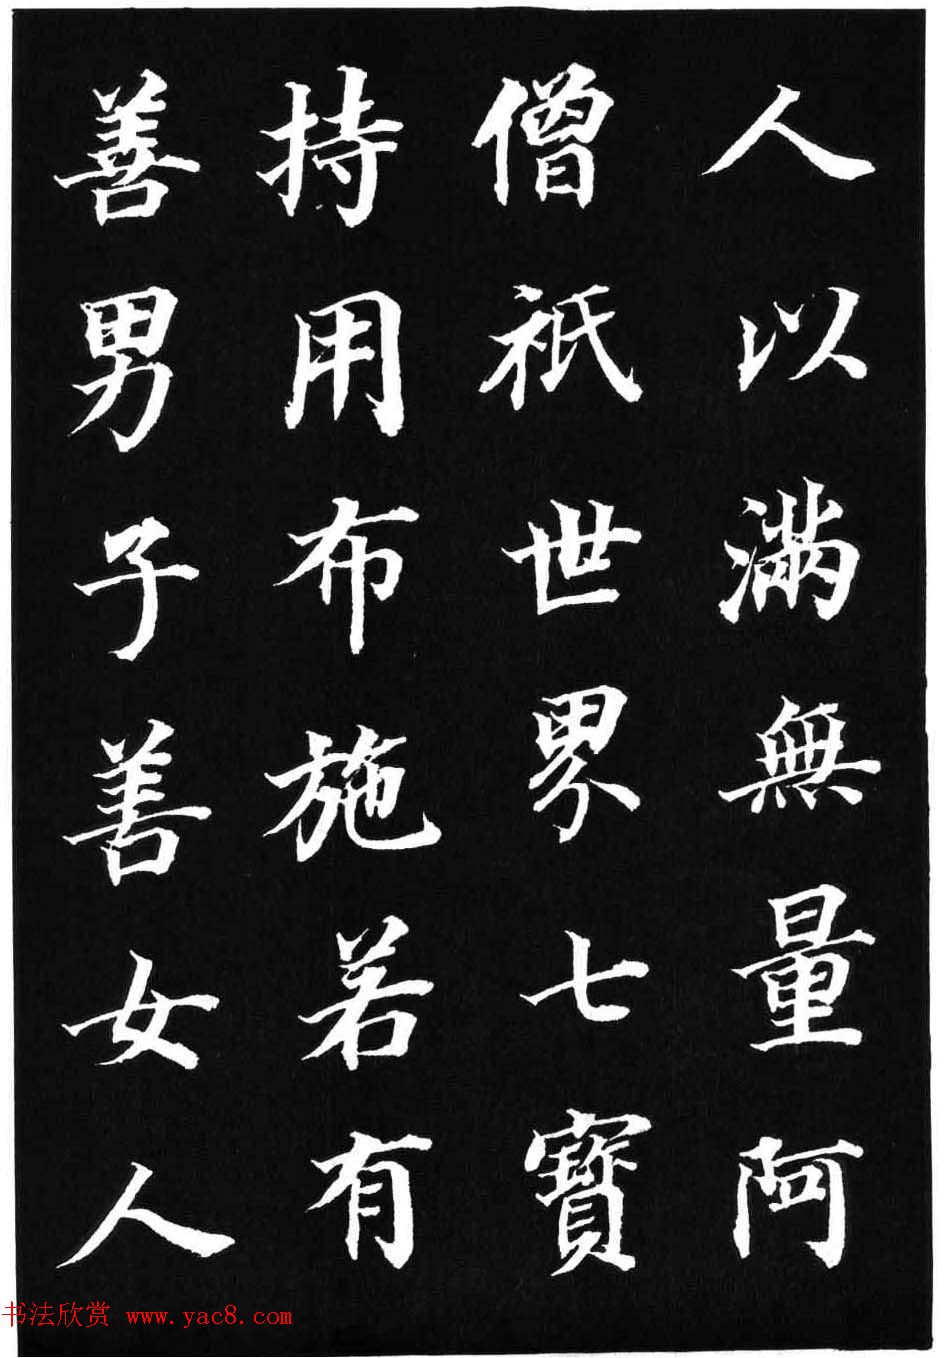 人以滿無量阿
僧祇世界七寶
持用布施若有
善男子善女人
书法欣赏 www.yac8.com